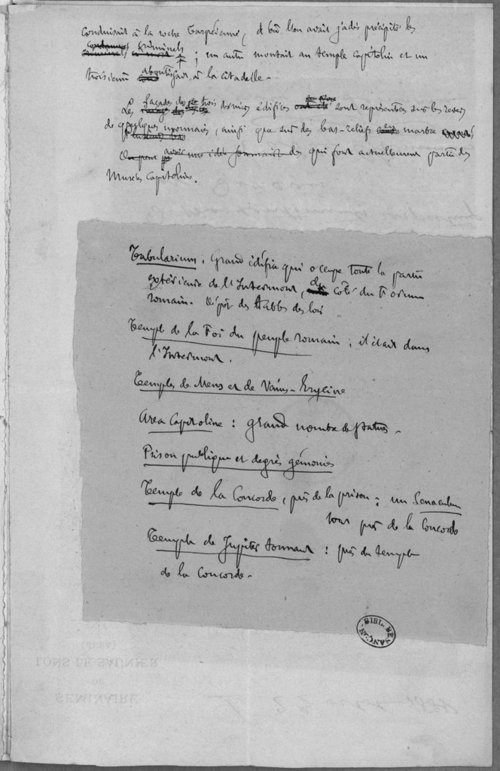 conduisait à la roche Tarpéienne, d'où l'on avait jadis précipité les
criminels ; un autre montait au temple Capitolin et un
troisième aboutissait à la citadelle.
Les façades des trois derniers édifices sont représentées sur les revers
de quelques monnaies, ainsi que sur des bas-reliefs marbre
qui font actuellement partie des
Musées Capitolins.
Tabularium. Grand édifice qui occupe toute la partie
extérieure de l'Intermont, du côté du Forum
romain. Dépôt des tables des lois
Temple de la Foi du peuple romain ; il était dans
l'Intermont.
Temples de Mens et de Vénus-Erycine
Area Capitoline : grand nombre de statues.
Prison publique et degrés gémonies
Temple de la Concorde, près de la prison ; un Senaculum
tous près de la Concorde
Temple de Jupiter tonnant : près du temple
de la Concorde.
BIBL. DE
LONS LE SAUNIER
SÉMINAIRE